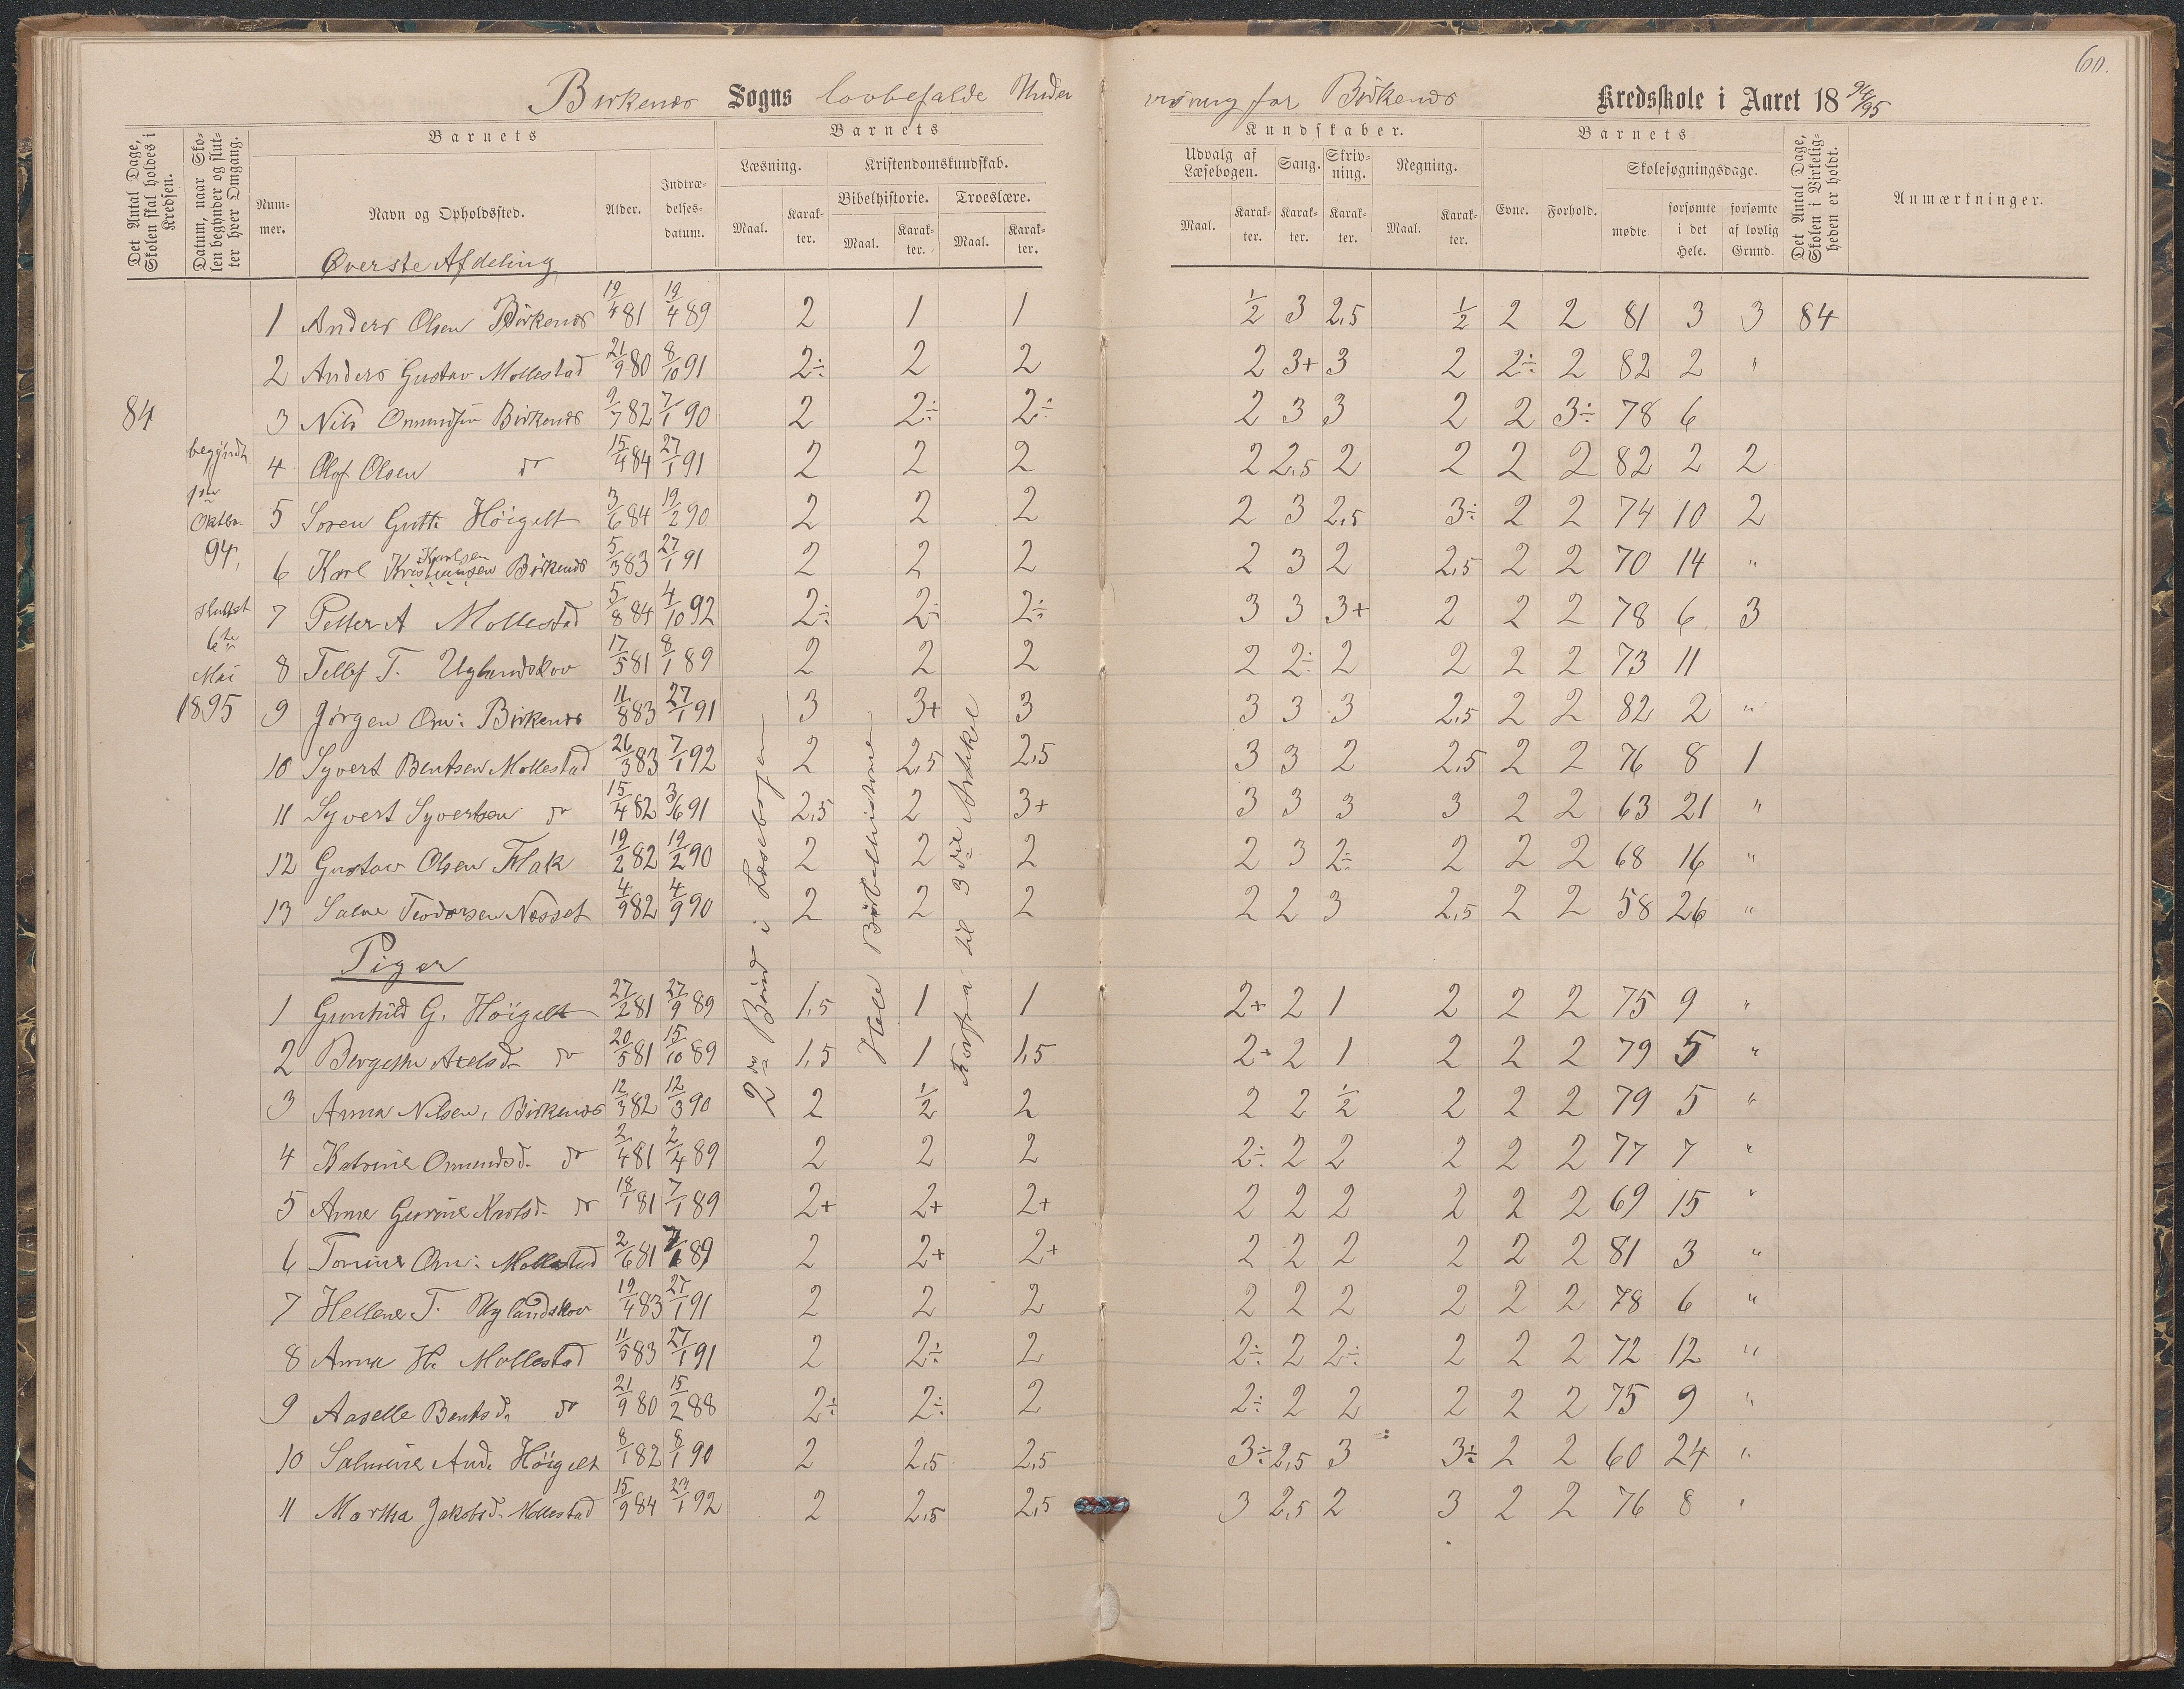 60.
Birkenes Sogns lovbefalde Undervisning for Birkenes Kredsskole i Aaret 18 94/95
Det Antal Dage, Skolen skal holdes i Kredsen.
Datum, naar Skolen begynder og slutter hver Omgang.
Barnets
Nummer.
Navn og Opholdssted.
Alder.
Indtrædelses-datum.
Barnets
Læsning.
Maal.
Karakter.
Kristendomskundskab.
Bibelhistorie.
Maal.
Karakter.
Troeslære.
Maal.
Karakter.
Kundskaber.
Udvalg af Læsebogen.
Maal.
Karakter.
Sang.
Karakter.
Skrivning.
Karakter.
Regning.
Maal.
Karakter.
Barnets
Evne.
Forhold.
Skolesøgningsdage.
mødte.
forsømte i det Hele.
forsømte af lovlig Grund.
Det Antal Dage, Skolen i Virkeligheden er holdt.
Anmærkninger.
Øverste Afdeling
84
begyndt 1ste Oktbr. 94,
sluttet 6te Mai 1895
2den Bind i Læsebogen
Hele Bibelhistorien
Forfra til 3die Artikel
1 Anders Olsen Birkenes 19/4 81 19/4 89 2 1 1 1/2 3 2,5 1/2 2 2 81 3 3 84
2 Anders Gustav Mollestad 21/9 80 8/10 91 2÷ 2 2 2 3+ 3 2 2÷ 2 82 2 "
3 Nils Omundsen Birkenes 9/7 82 7/1 90 2 2÷ 2÷ 2 3 3 2 2 3÷ 78 6
4 Olof Olsen do 15/4 84 27/1 91 2 2 2 2 2,5 2 2 2 2 82 2 2
5 Soren Gutt: Höigelt 3/6 84 19/2 90 2 2 2 2 3 2,5 3÷ 2 2 74 10 2
6 Karl Kristiansen Karlsen Birkenes 5/3 83 27/1 91 2 2 2 2 3 2 2,5 2 2 70 14 "
7 Petter A Mollestad 5/8 84 4/10 92 2÷ 2÷ 2÷ 3 3 3+ 2 2 2 78 6 3
8 Tellef T. Uglandskov 17/5 81 8/1 89 2 2 2 2 2÷ 2 2 2 2 73 11
9 Jørgen Om: Birkenes 11/8 83 27/1 91 3 3+ 3 3 3 3 2,5 2 2 82 2 "
10 Syvert Bentsen Mollestad 26/3 83 7/1 92 2 2,5 2,5 3 3 2 2,5 2 2 76 8 1
11 Syvert Syvertsen do 15/4 82 3/6 91 2,5 2 3+ 3 3 3 3 2 2 63 21 "
12 Gustav Olsen Flak 19/2 82 19/2 90 2 2 2 2 3 2÷ 2 2 2 68 16 "
13 Salve Teodorsen Næsset 4/9 82 4/9 90 2 2 2 2 2 3 2,5 2 2 58 26 "
Piger
1 Gunhild G. Höigelt 27/2 81 27/9 89 1,5 1 1 2+ 2 1 2 2 2 75 9 "
2 Bergethe Axelsd. do 20/5 81 15/10 89 1,5 1 1,5 2+ 2 1 2 2 2 79 5 "
3 Anna Nilsen, Birkenes 12/3 82 12/3 90 2 1/2 2 2 2 1/2 2 2 2 79 5 "
4 Katrine Omundsd. do 2/4 81 2/4 89 2 2 2 2÷ 2 2 2 2 2 77 7 "
5 Anne Gurine Karlsd. do 18/1 81 7/1 89 2+ 2+ 2+ 2 2 2 2 2 2 69 15 "
6 Tomine Om: Mollestad 2/6 81 89 2 2+ 2+ 2 2 2 2 2 2 81 3 "
7 Hellene T. Uglandskov 19/4 83 27/1 91 2 2 2 2 2 2 2 2 2 78 6 "
8 Anna H. Mollestad 11/5 83 27/1 91 2 2÷ 2 2÷ 2 2÷ 2 2 2 72 12 "
9 Aaselle Bentsd. do 21/9 80 15/2 88 2÷ 2÷ 2 2÷ 2 2 2 2 2 75 9 "
10 Salmine And. Höigelt 8/1 82 8/1 90 2 2,5 2,5 3÷ 2,5 3 3÷ 2 2 60 24 "
11 Martha Jakobsd. Mollestad 15/9 84 27/1 92 2 2,5 2,5 3 2,5 2 3 2 2 76 8 "